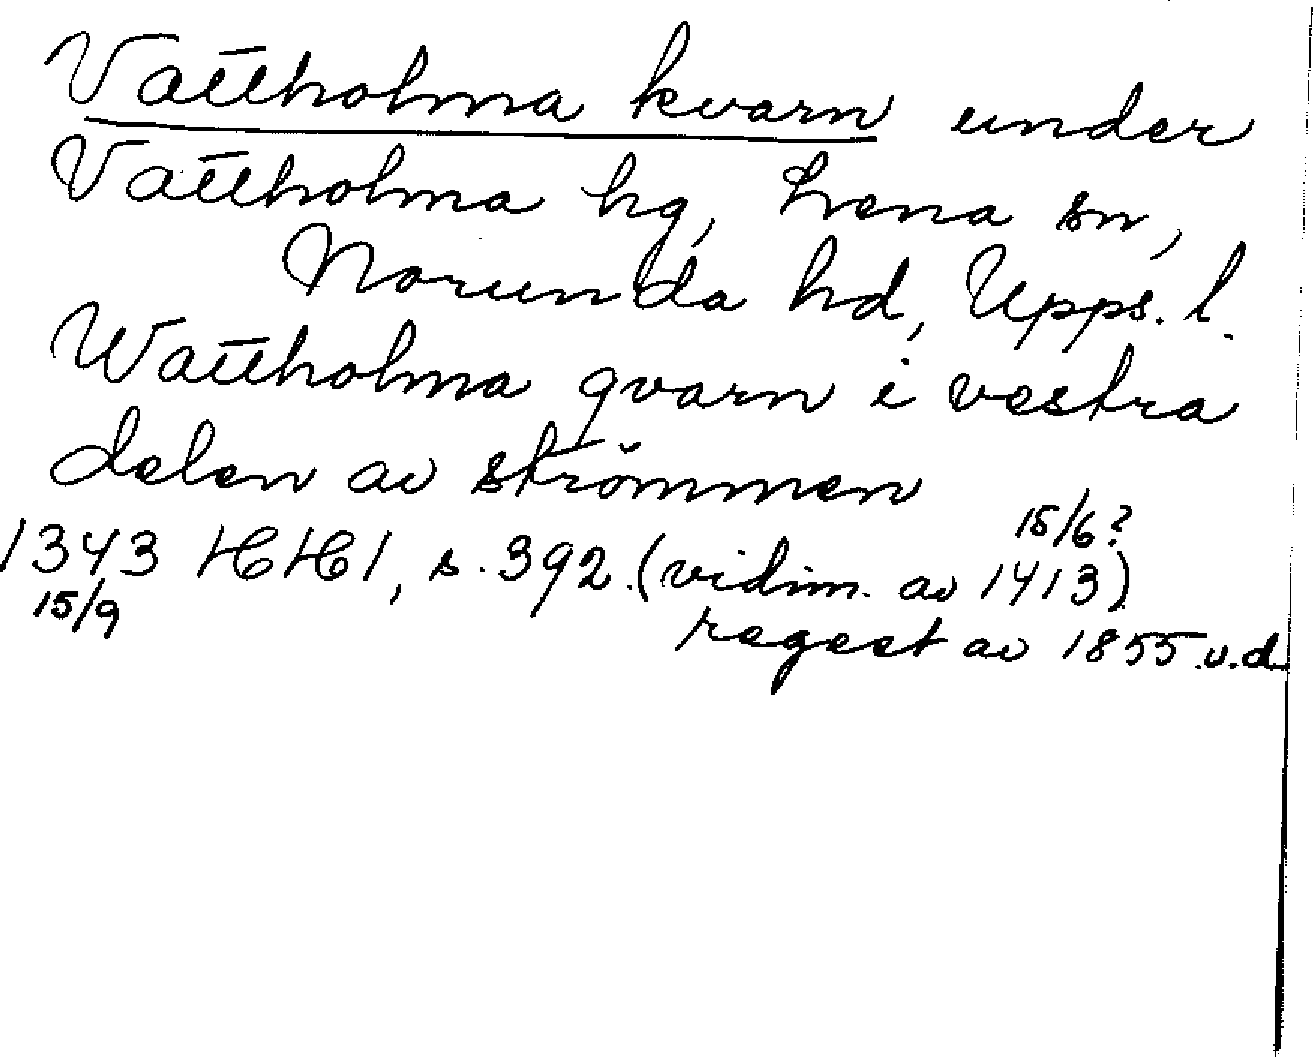 Vattholma kvarn under
Vattholma hg, Lena sn,
Norunda hd, Upps. l.
Wattholma qvarn i vestra
delen av strömmen
15/6?
1343 HH 1, s. 392. (vidim. av 1413)
15/9
regest av 1855. u.d.